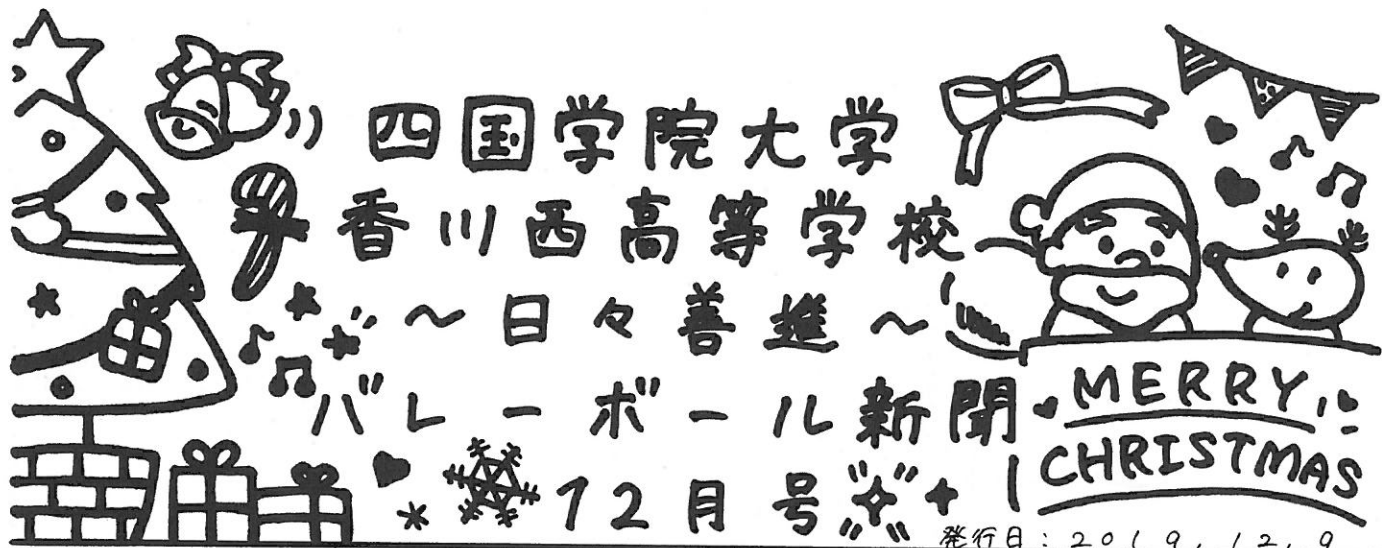 四国学院大学
香川西高等学校
～日々善進～
バレーボール新聞
12月号
MERRY
CHRISTMAS
発行日：2019.12.9